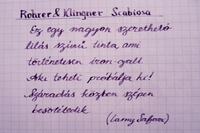 Rohrer & Klingner Scabiosa
Ez egy nagyon szerethető
lilás színű tinta, ami
történetesen iron-gall.
Aki teheti próbálja ki!
Száradás közben szépen
besötétedik.
(Lamy Safari)